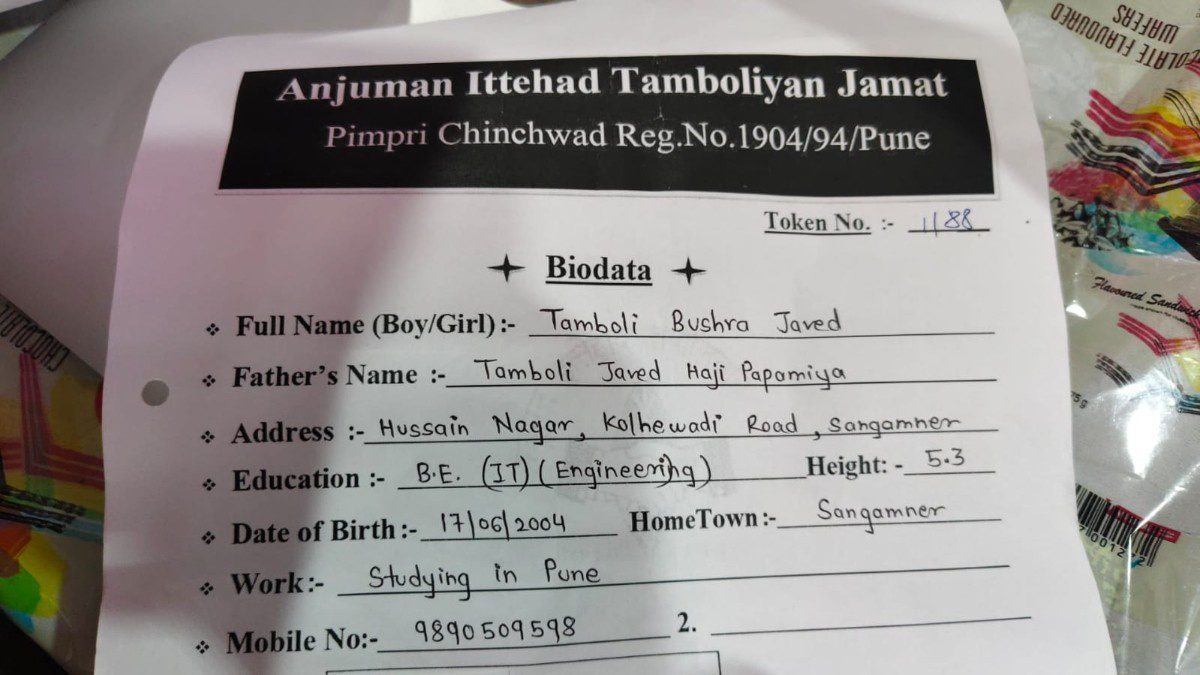 Anjuman Ittehad Tamboliyan Jamat
Pimpri Chinchwad Reg.No.1904/94/Pune
Token No. :- 1188
Biodata
Full Name (Boy/Girl):- Tamboli Bushra Javed
Father's Name :- Tamboli Javed Haji Papamiya
Address :- Hussain Nagar, Kolhewadi Road, Sangamner
Education :- B.E. (IT) (Engineering) Height: - 5.3
Date of Birth:- 17/06/2004 HomeTown:- Sangamner
Work:- Studying in Pune
Mobile No:- 9890509598 2.
FLAVOURED
WAFERS
Flavoured
75g